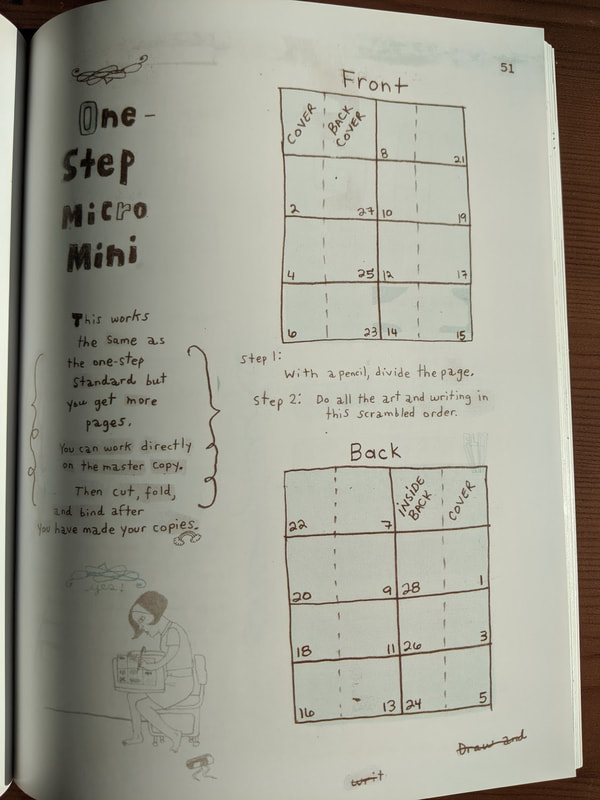 51
One-
Step
Micro
Mini
This works
the same as
the one-step
standard but
you get more
pages.
You can work directly
on the master copy.
Then cut, fold,
and bind after
you have made your copies.
Front
COVER BACK COVER 8 21
2 27 10 19
4 25 12 17
6 23 14 15
Step 1:
With a pencil, divide the page.
Step 2: Do all the art and writing in
this scrambled order.
Back
22 7 INSIDE BACK COVER
20 9 28 1
18 11 26 3
16 13 24 5
Draw and
writ